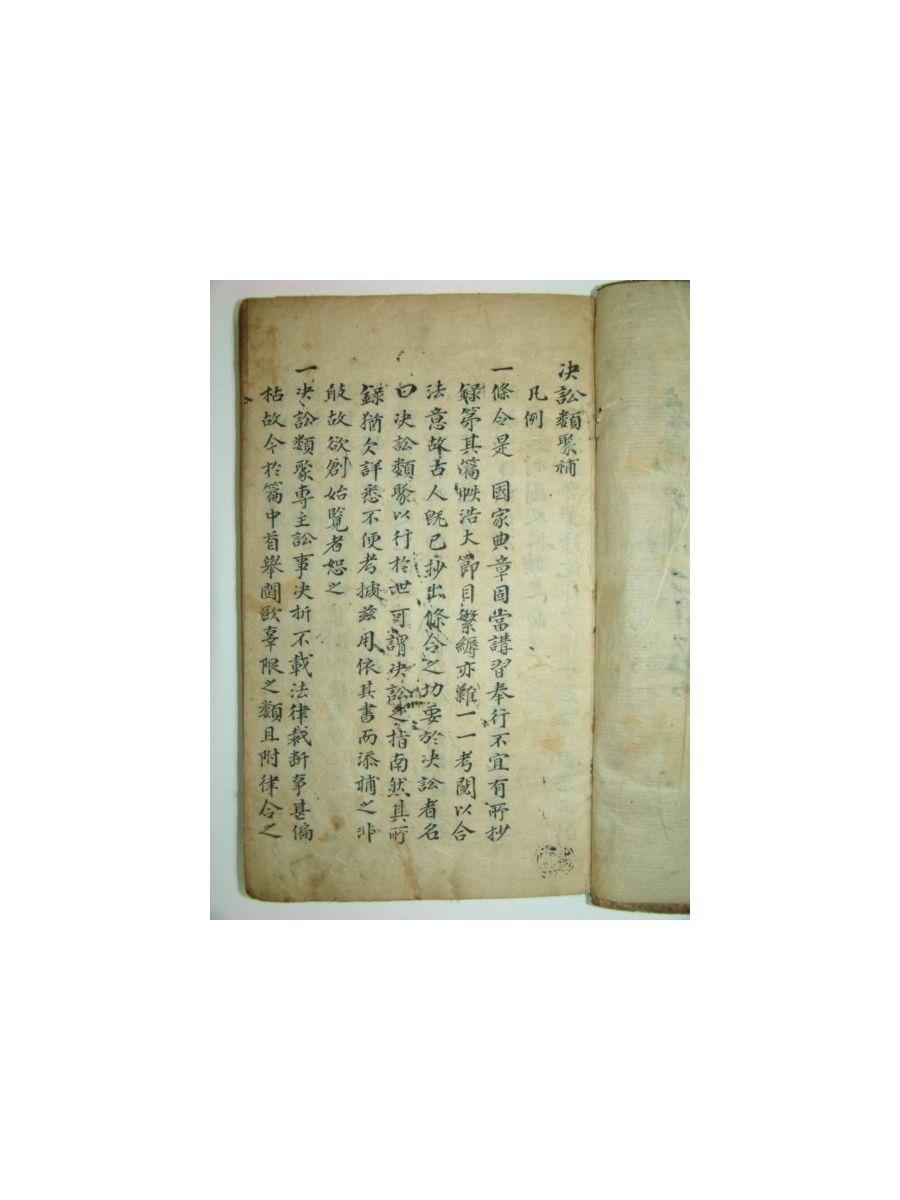 决訟類聚補
凡例
一條令是 國家典章固當講習奉行不宜有所抄
錄第其篇帙浩大節目繁縟亦難一一考閱以合
法意故古人旣已抄出條令之切要於决訟者名
曰决訟類聚以行於世可謂决訟之指南然其所
錄猶欠詳悉不便考據玆用依其書而添補之非
敢故欲創始覽者恕之
一决訟類聚專主訟事决折不載法律裁斷事甚偏
枯故今於篇中首擧鬪歐辜限之類且附律令之